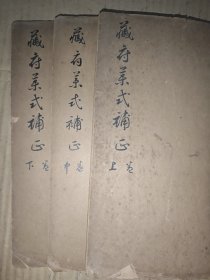 藏府藥式補正
上卷
藏府藥式補正
中卷
藏府藥式補正
下卷